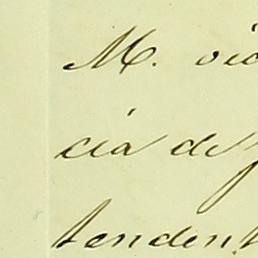 M. vic
cia de
tendent